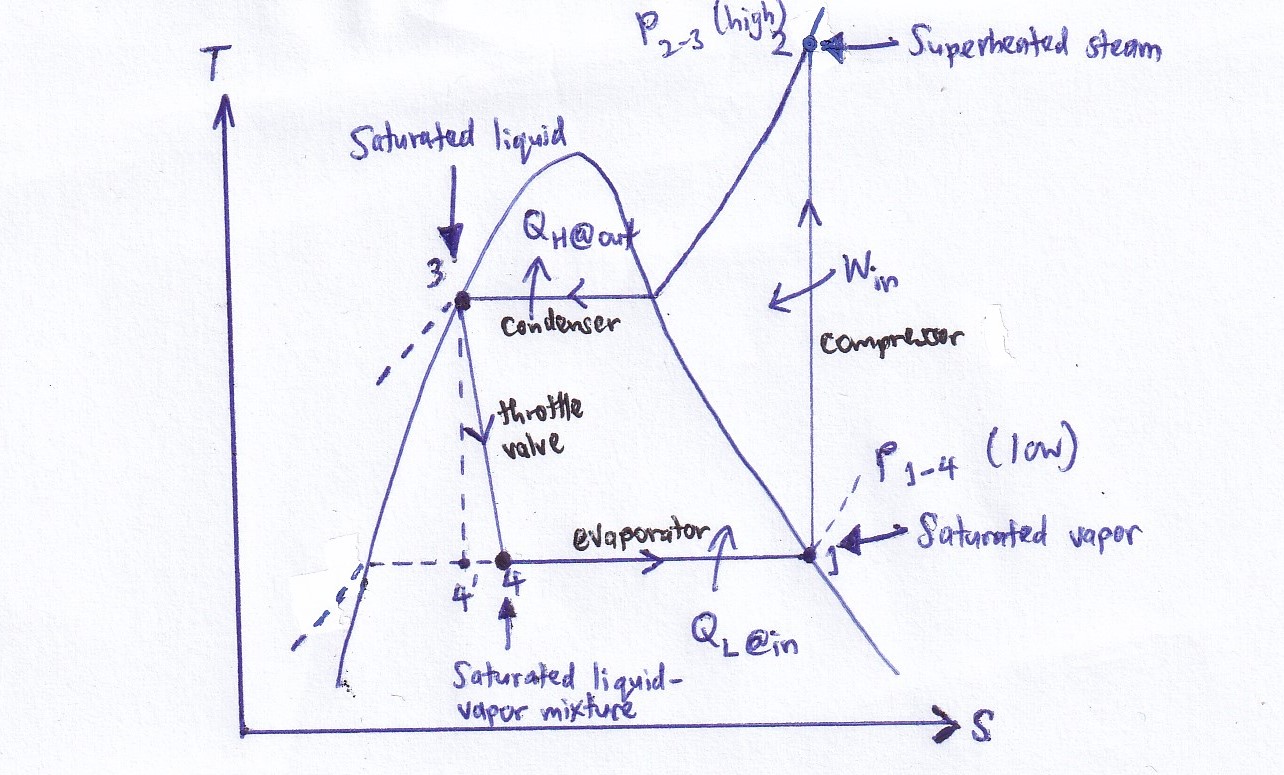 T
P2-3 (high)
2
Superheated steam
Saturated liquid
QH@out
3
condenser
Win
compressor
throttle
valve
P1-4 (low)
evaporator
Saturated vapor
1
4'
4
QL@in
Saturated liquid-
vapor mixture
S